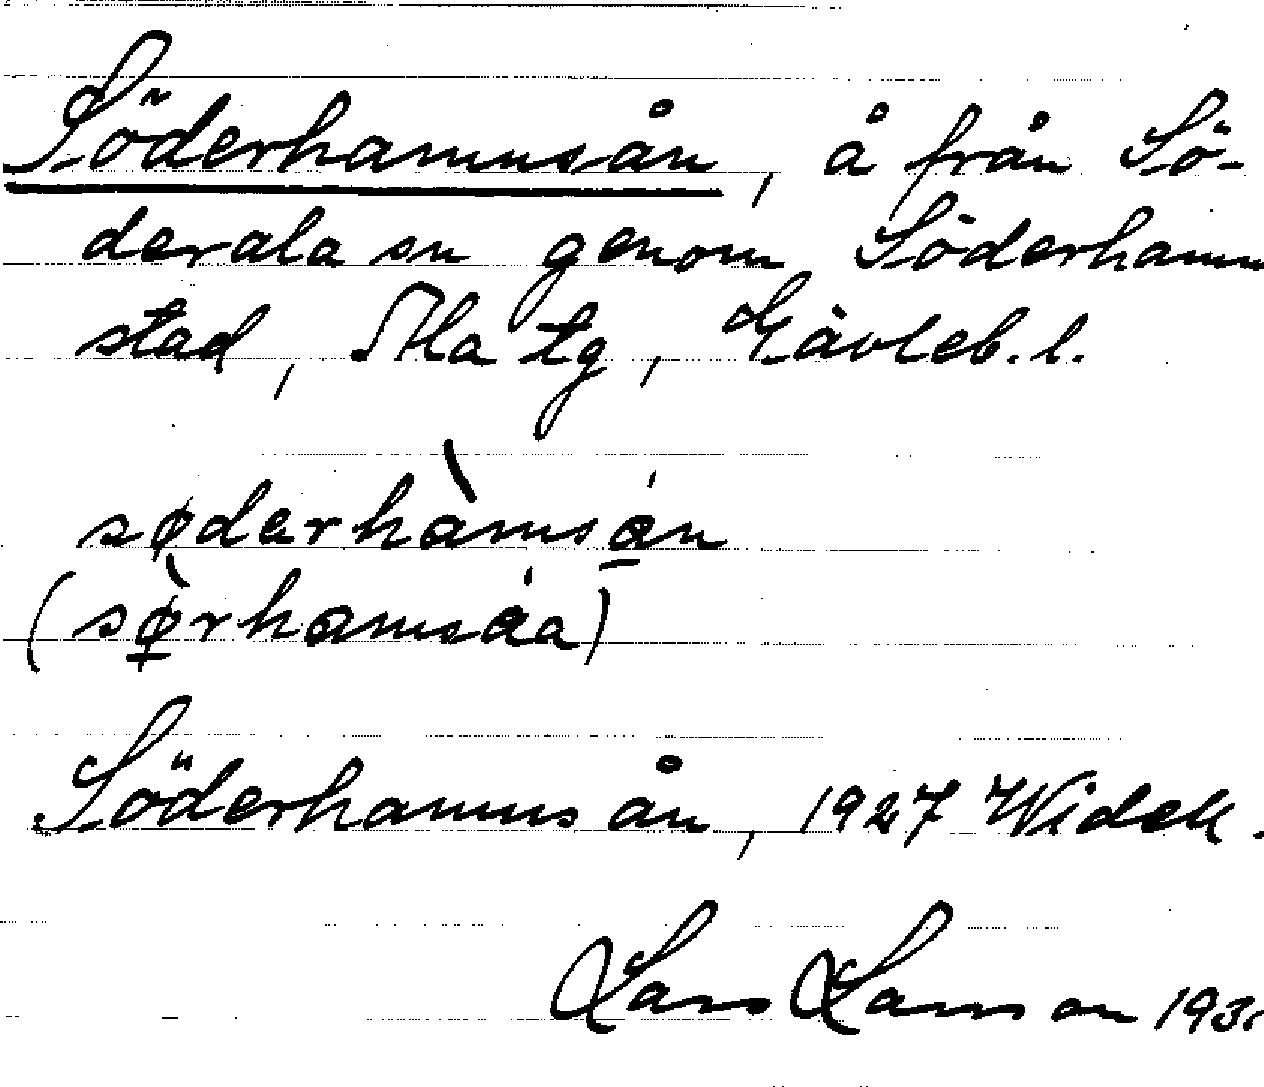 Söderhamnsån, å från Sö-
derala sn genom Söderhamn
stad, Ala tg, Gävleb. l.
sødarhàmsán
(sø̀rhamsáa)
Söderhamnsån, 1927 Widell.
Lars Larsson 193